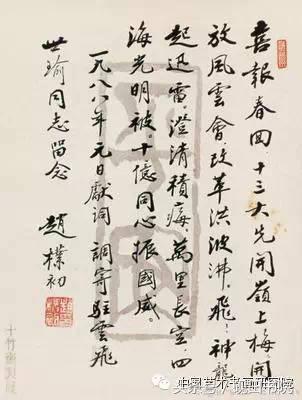 喜報春回十三大先開嶺上梅。開
放風雲會改革洪波沸。飛！神龍
起迅雷。澄清積霾。萬里長空四
海光明被。十億同心振國威。
一九八八年元日獻詞 調寄駐雲飛
世瑜同志留念
趙樸初
十竹齋製箋